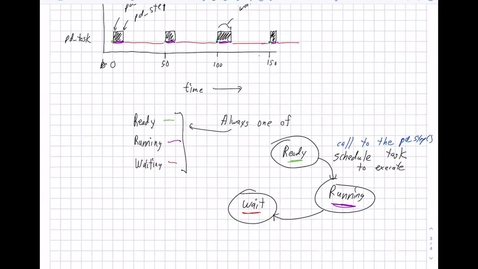 pd_step
pd_task
0 50 100 150
time
Ready
Running
Waiting
Always one of
Ready
call to the pd_step()
schedule task
to execute
Running
Wait